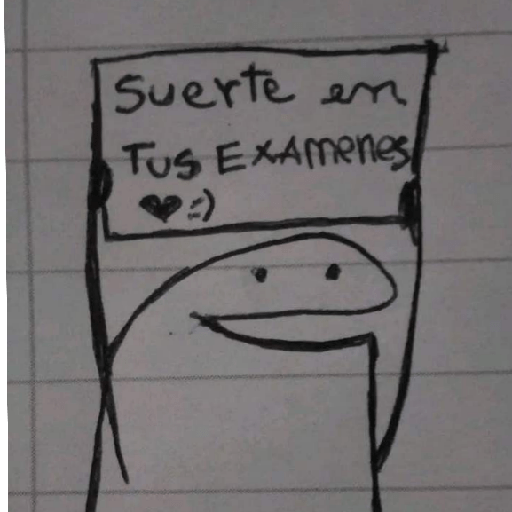 Suerte en
Tus Examenes
♥:)